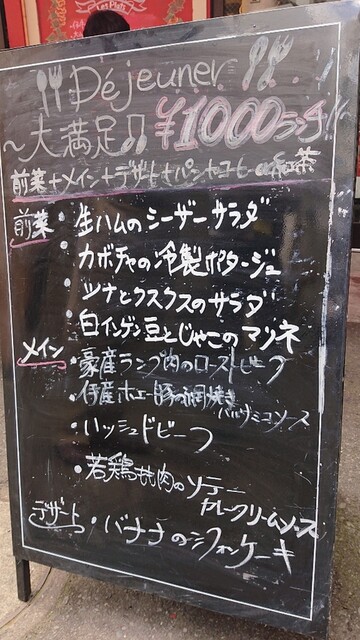 Les Plats
Déjeuner
～大満足♫ ¥1000ランチ!!
前菜+メイン+デザート+パン+コーヒーor紅茶
前菜
・生ハムのシーザーサラダ
・カボチャの冷製ポタージュ
・ツナとクスクスのサラダ
・白インゲン豆とじゃこのマリネ
メイン
・豪産ランプ肉のローストビーフ
・伊産ホエー豚の網焼き
バルサミコソース
・ハッシュドビーフ
・若鶏もも肉のソテー
カレークリームソース
デザート
・バナナのシフォンケーキ